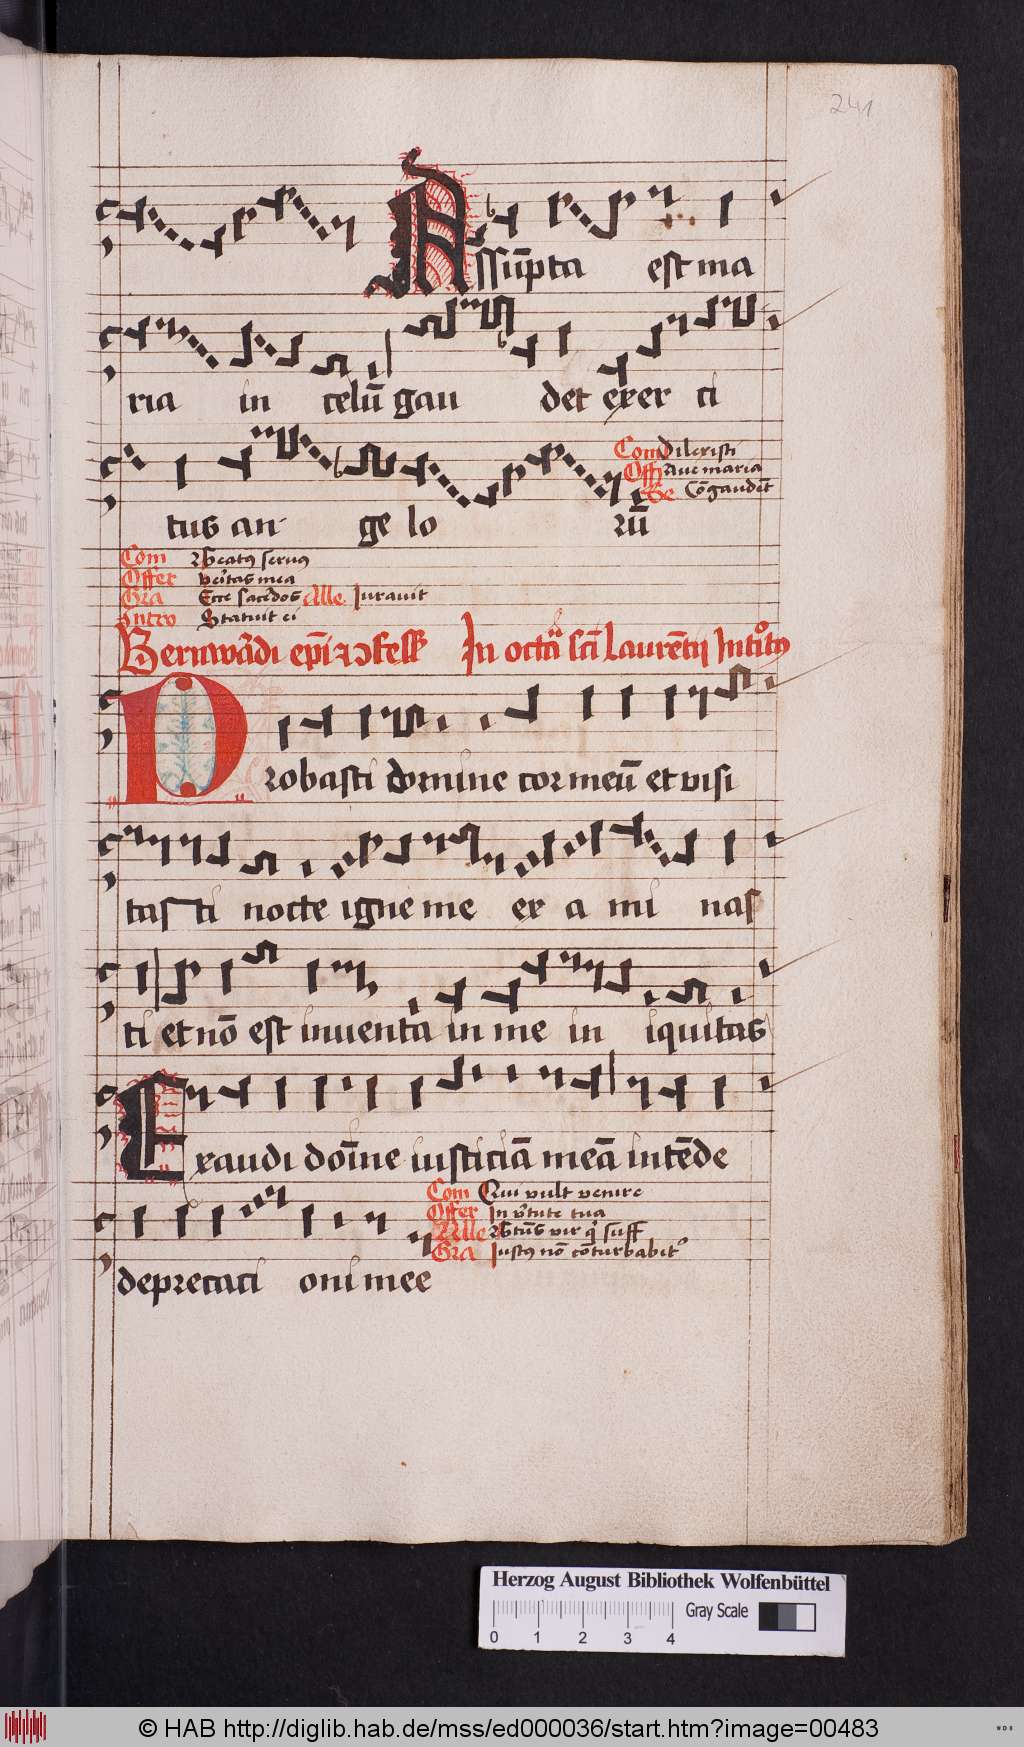 241
Assūpta est ma
ria in celū gau det exer ci
Com Dilexisti
Offi Aue maria
Se Cōgaudēt
tus an ge lo rū
Com Beatꝯ seruꝯ
Offer veritas mea
Gra Ecce sacerdos Alle Jurauit
Intro Statuit ei
Bernwardi epī ⁊ ↄfess In octā scī Laurētij Introitꝯ
Probasti domine cor meū et visi
tas ti nocte igne me ex a mi nas
ti et nō est inuenta in me in iquitas
Exaudi doīne iusticiā meā intēde
Com Qui vult venire
Offer In v̄tute tua
Alle
Gra Justꝯ nō cōturbabit᷒
depreca ci oni mee
Herzog August Bibliothek Wolfenbüttel
Gray Scale
0 1 2 3 4
© HAB http://diglib.hab.de/mss/ed000036/start.htm?image=00483